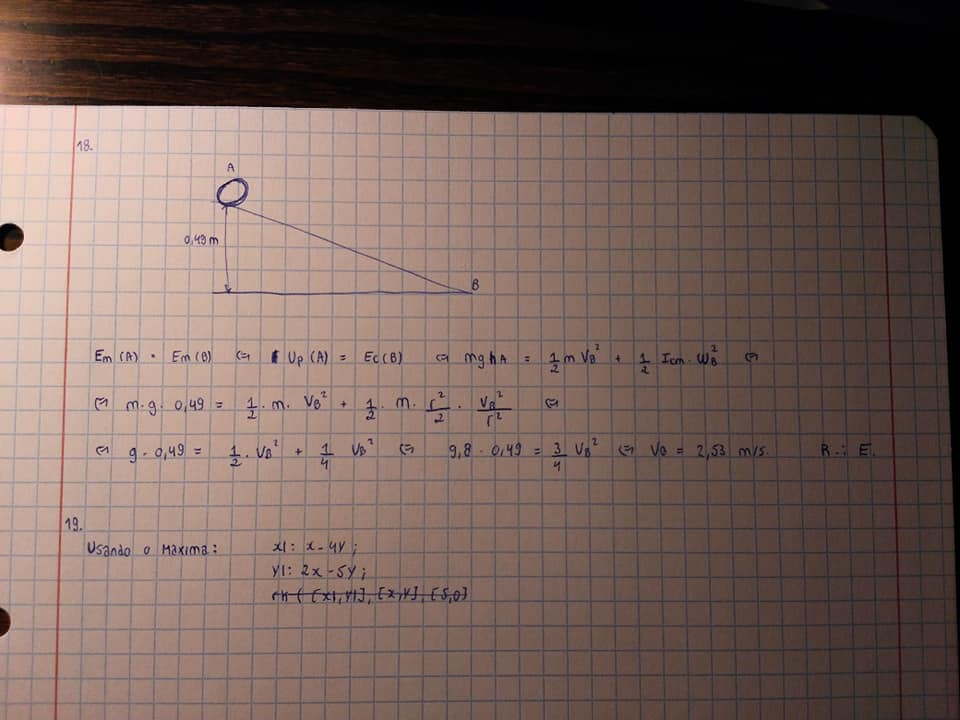 18.
A
0,49 m
B
Em (A) = Em (B) ⇔ Up (A) = Ec (B) ⇔ mghA = 1/2 m VB² + 1/2 Icm · WB² ⇔
⇔ m · g · 0,49 = 1/2 · m · VB² + 1/2 · m · r²/2 · VB²/r² ⇔
⇔ g · 0,49 = 1/2 · VB² + 1/4 VB² ⇔ 9,8 · 0,49 = 3/4 VB² ⇔ VB = 2,53 m/s. R.: E.
19.
Usando o Maxima: x1: x-4y;
y1: 2x-5y;
rk ( [x1,y1], [x,y], [5,0]